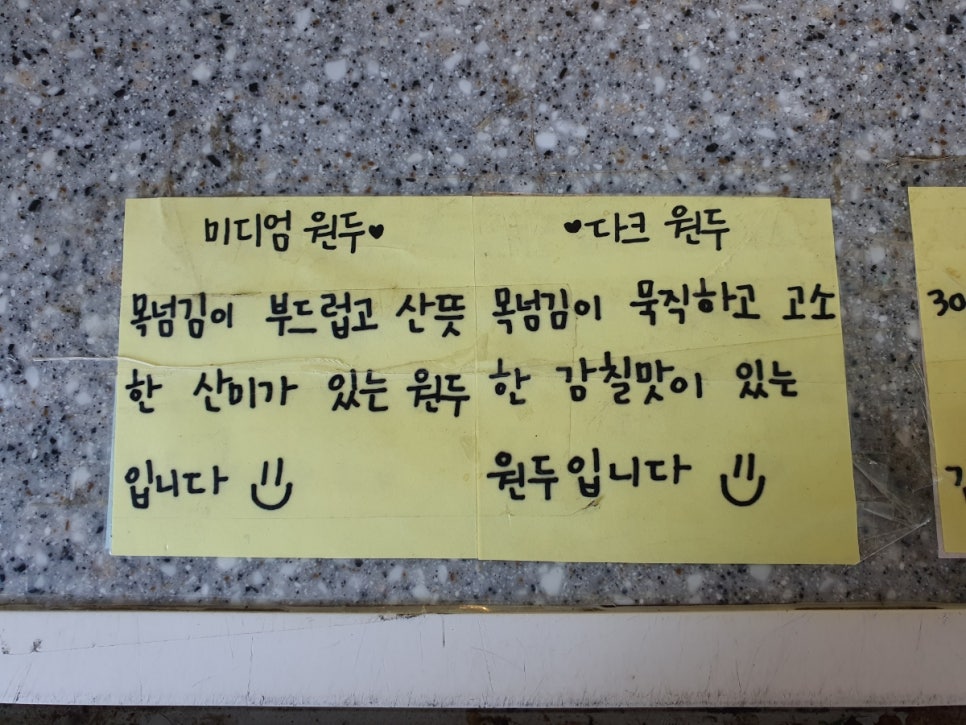 미디엄 원두♥
목넘김이 부드럽고 산뜻
한 산미가 있는 원두
입니다
♥다크 원두
목넘김이 묵직하고 고소
한 감칠맛이 있는
원두입니다
30